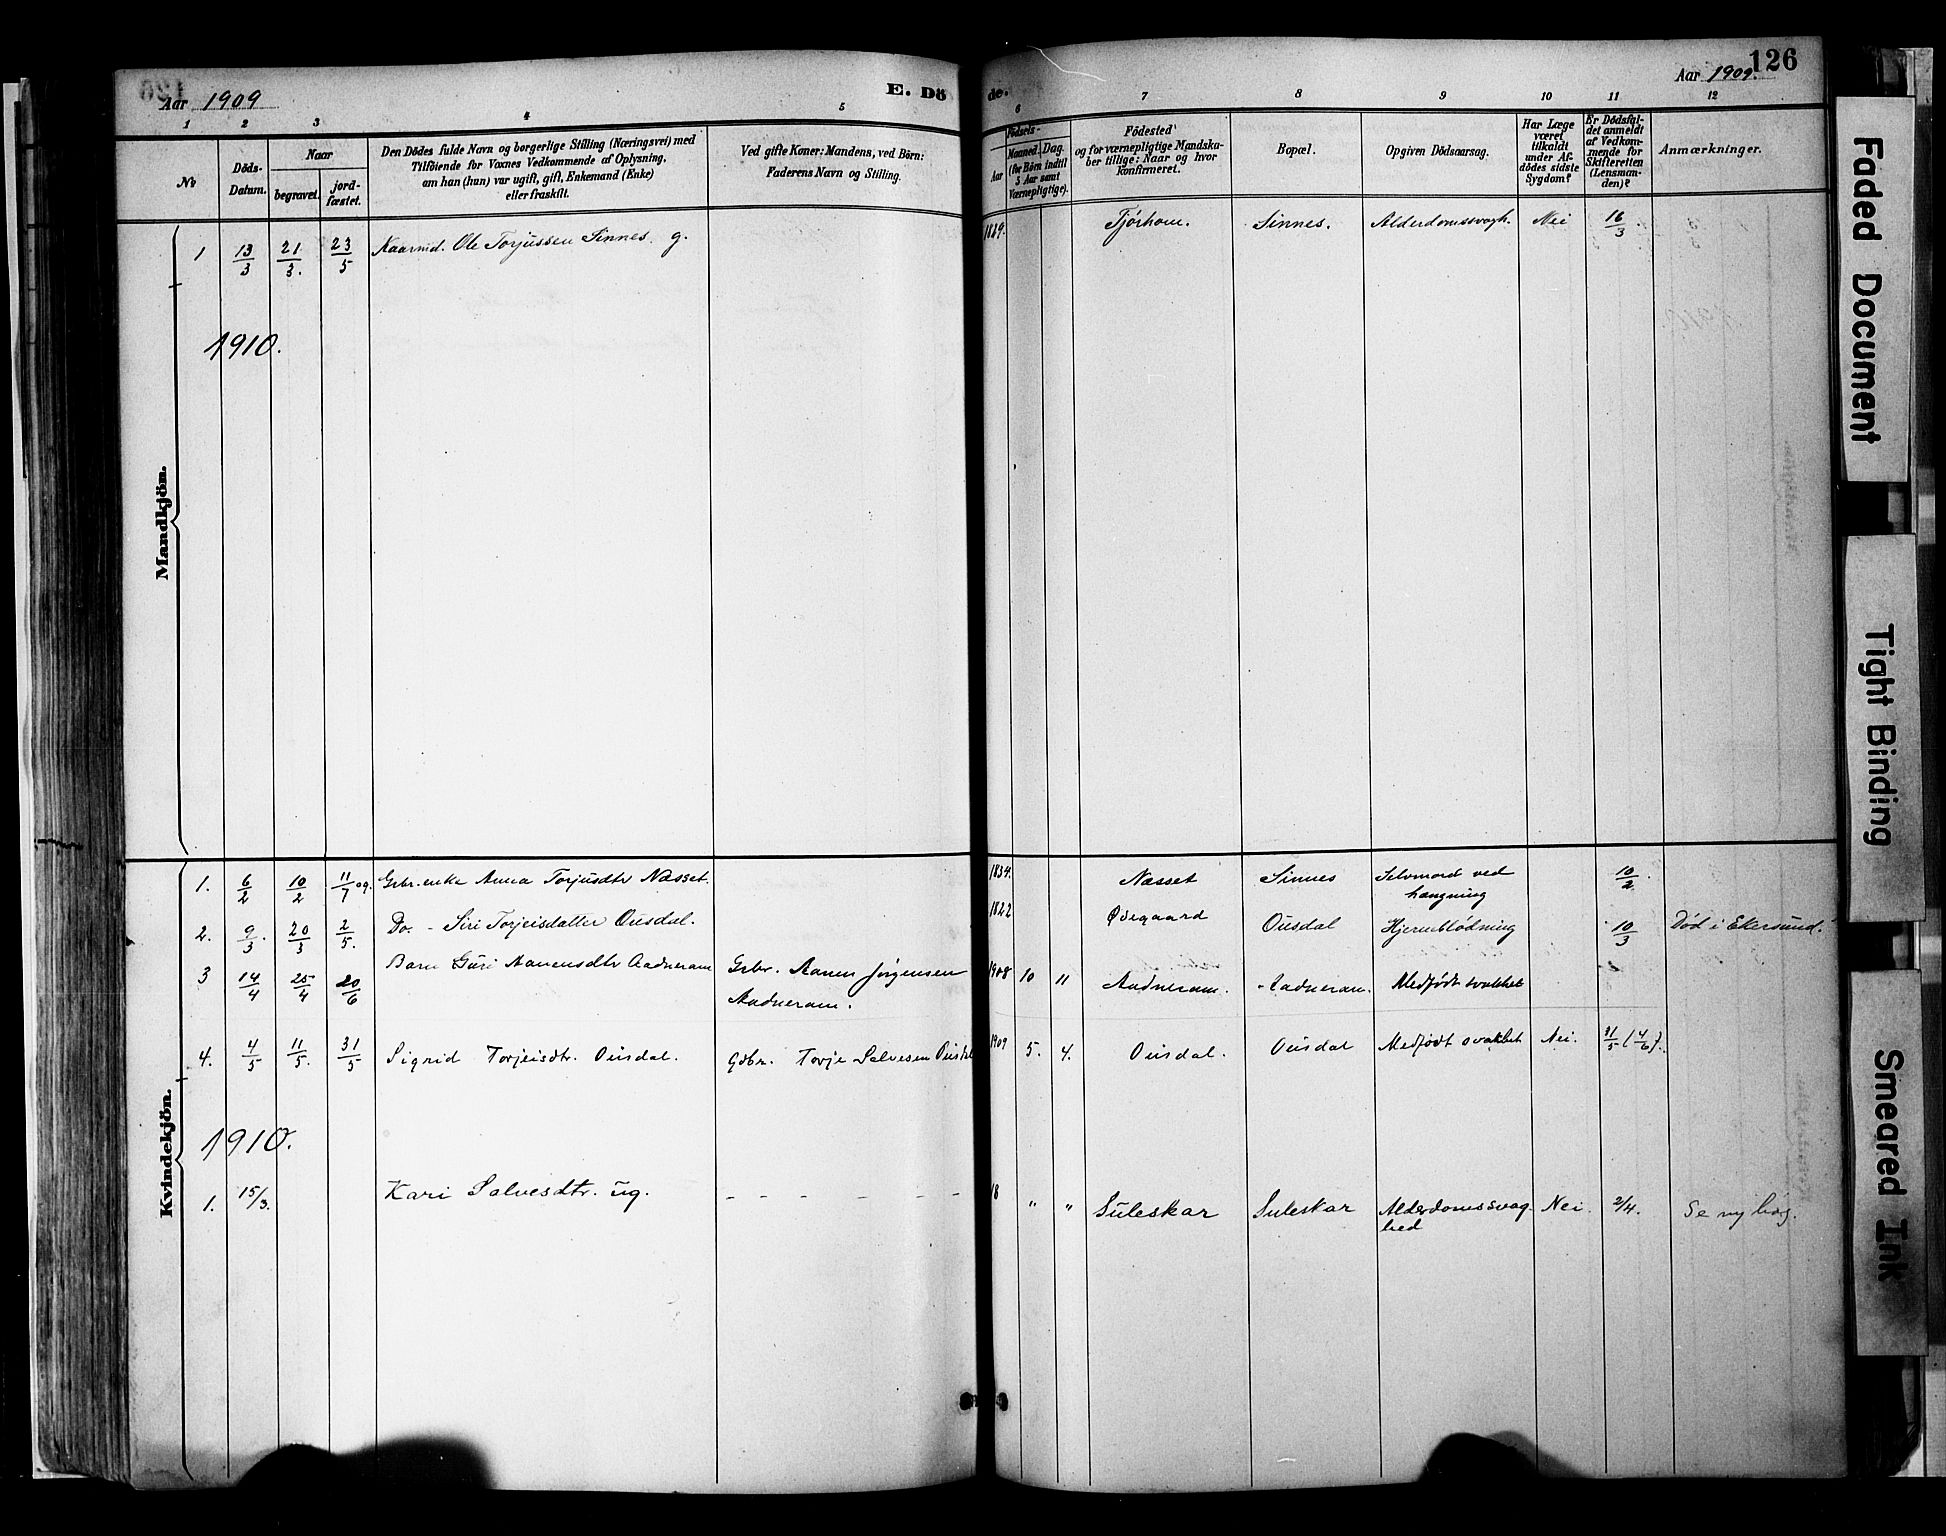 Aar 1909
E. Dö
de.
Aar 1909.
126
1 2 3 4 5 6 7 8 9 10 11 12
№
Döds-
Datum.
Naar
begravet.
jord-
fæstet.
Den Dödes fulde Navn og borgerlige Stilling (Næringsvei) med
Tilföiende for Voxnes Vedkommende af Oplysning,
om han (hun) var ugift, gift, Enkemand (Enke)
eller fraskilt.
Ved gifte Koner: Mandens, ved Börn:
Faderens Navn og Stilling.
Födsels-
Aar
Maaned. Dag.
(for Börn indtil
5 Aar samt
Værnepligtige).
Födested
og for værnepligtige Mandska-
ber tillige: Naar og hvor
konfirmeret.
Bopæl.
Opgiven Dödsaarsag.
Har Læge
været
tilkaldt
under Af-
dödes sidste
Sygdom?
Er Dödsfal-
det anmeldt
af Vedkom-
mende for
Skifteretten
(Lensman-
den)?
Anmærkninger.
Mandkjön.
1 13/3 21/3. 23/5 Kaarmd. Ole Torjussen Sinnes. g. Tjórhom. Sinnes. Alderdomssvagh. Nei 16/3.
1910.
Kvindekjön.
1. 6/2 10/2 11/7 og. Grbr. enke Anna Torjusdtr Næsset. 1834. Næsset Sinnes Selvmord ved
hængning 10/2.
2. 9/3. 20/3 2/5. Do. - Siri Torjeisdatter Ousdal. 1822 Ødegaard Ousdal Hjerneblødning 10/3 Død i Ekersund.
3 14/4 25/4 20/6 Barn Guri Aanensdtr Aadneram Grbr. Aanen Jørgensen
Aadneram. 1908 10 11 Aadneram. Aadneram. Medfødt svakhet
4. 4/5 11/5. 31/5 Sigrid Torjeisdtr. Ousdal. Gdbr. Torje Salvesen Ousdal 1909 5. 4. Ousdal. Ousdal Medfødt svakhet Nei. 31/5 (4/6).
1910.
1. 15/3. Kari Salvesdtr. ug. - - - - - - - 18 " " Suleskar Suleskar Alderdomssvag-
hed Nei. 2/4. Se ny bog.
Faded Document
Tight Binding
Smeared Ink